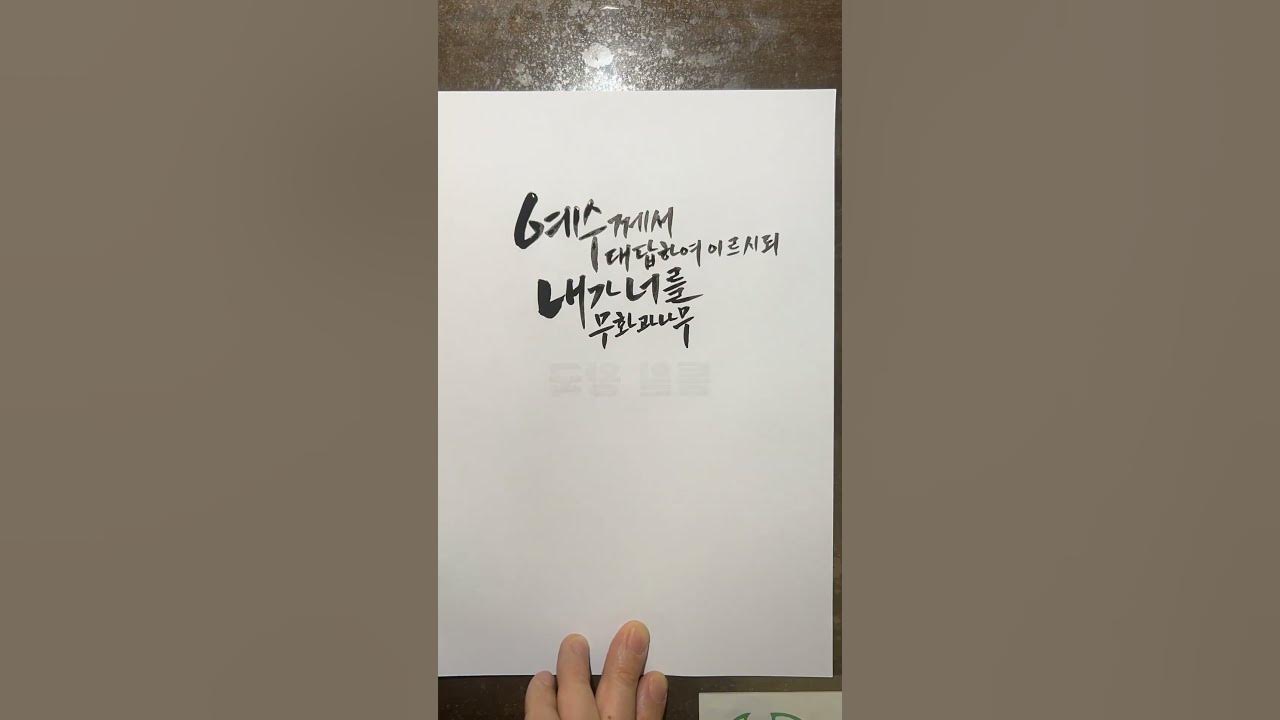 예수께서
대답하여 이르시되
내가 너를
무화과나무